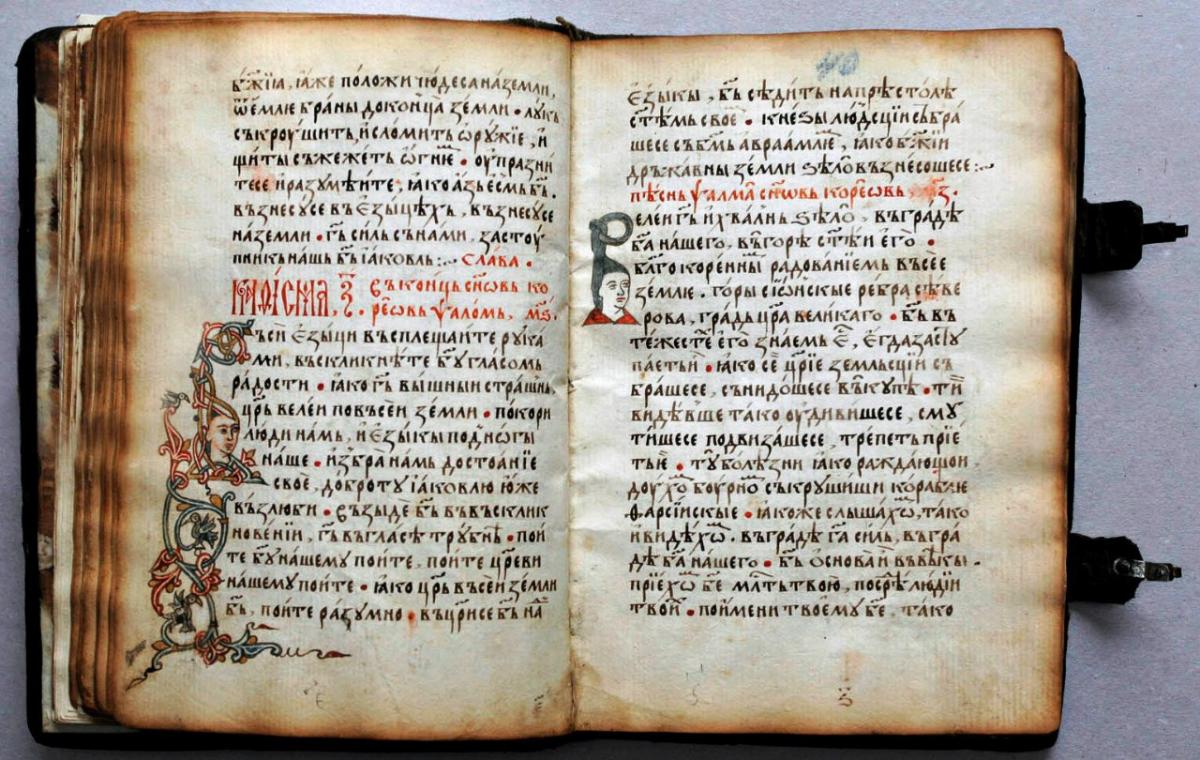 бж҃їа, ꙗ҆́же положи чюдеса на земли,
ѿемлѥ брани до конца земли • лукь
съкроушить, и҆ сломить ѡ҆ружїе, и҆
щиты съжежеть ѡ҆гнѥⷨ • оупразни
тесе и҆ разумѣите, ꙗко а҆зь е҆смь бь҃.
възнесусе въ є҆зыцѣхь, възнесусе
на земли • гь҃ силь съ нами, застоу
пникь нашь бь҃ і҆аковль :~ слава •
каѳисма, з҃. въ конць сн҃овь ко
реѡвь ѱаломь, мѕ҃.
Въси є҆зыци въсплещаите рука
ми, въскликнѣте бу҃ гласомь
радости • ꙗко гь҃ вышныи страшнь,
црь҃ велеи по въсеи земли • покори
люди намь, и҆ є҆зыкы под ногы
наше • и҆збра намь достоанїе
свое, доброту і҆аковлю юже
възлюби • възыде бь҃ въ въсклик
новени, гь҃ въ гласѣ трубнѣ • пои
те бу҃ нашему поите, поите цр҃еви
нашему поите • ꙗко црь҃ въсеи земли
бь҃, поите разумно • въцр҃исе бь҃ на
є҆зыкы, бь҃ сѣдить на прѣстолѣ
ст҃ѣмь своеⷨ • кнезы людсции събра
шесе съ бм҃ь авраамлѥ, ꙗко бж҃їи
дръжавны земли ѕѣлѡ възнесошесе :~
пѣснь ѱалма сн҃овь кореѡвь мз҃.
Велеи гь҃ и҆ хвалнь ѕѣлѡ, въ градѣ
ба҃ нашего, въ горѣ ст҃ѣи е҆го •
благо коренны радованїемь въсее
землѥ. горы сїѡнскые ребра сѣве
рова, градь цр҃а великаго • бь҃ въ
тежестеⷯ е҆го знаемь єⷭ҇, є҆гда засту
паеть и • ꙗко се цр҃їе земльсции съ
брашесе, сънидошесе въкупѣ • тїи
видѣвше тако оудивишесе, сму
тишесе подвизашесе, трепеть прїе
ть е • ту болѣзни ꙗко раждающои
доухоⷨ боурноⷨ съкрушиши кораблѥ
ѳарсїискые • ꙗкоже слышахоⷨ, тако
и҆ видѣхоⷨ. въ градѣ га҃ силь, въ гра
дѣ ба҃ нашего • бь҃ ѡ҆снова и въ вѣкы •
прїехоⷨ бе҃ млⷭ҇ть твою, посрѣ людїи
твоиⷯ • по и҆мени твоему бе҃, тако